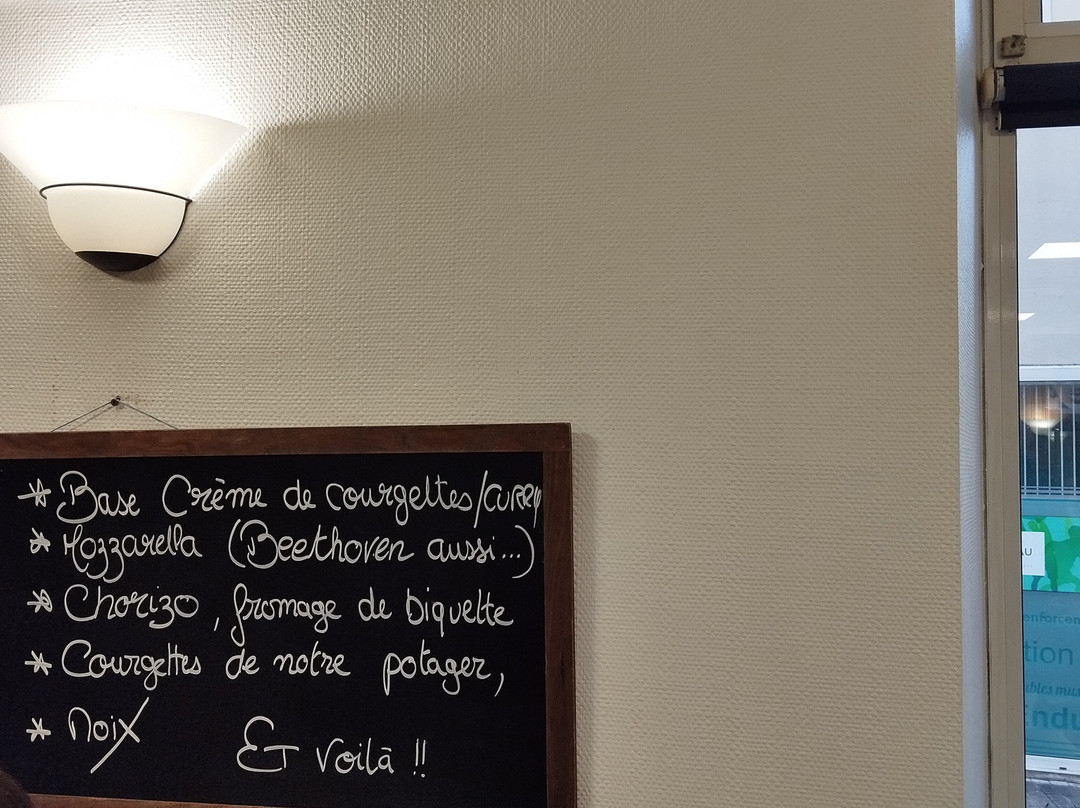 * Base Crème de courgettes/CURRY
* Mozzarella (Beethoven aussi...)
* Chorizo, fromage de biquette
* Courgettes de notre potager,
* Noix
Et voilà !!
AU
enforcem
tion
ubles mus
Endu